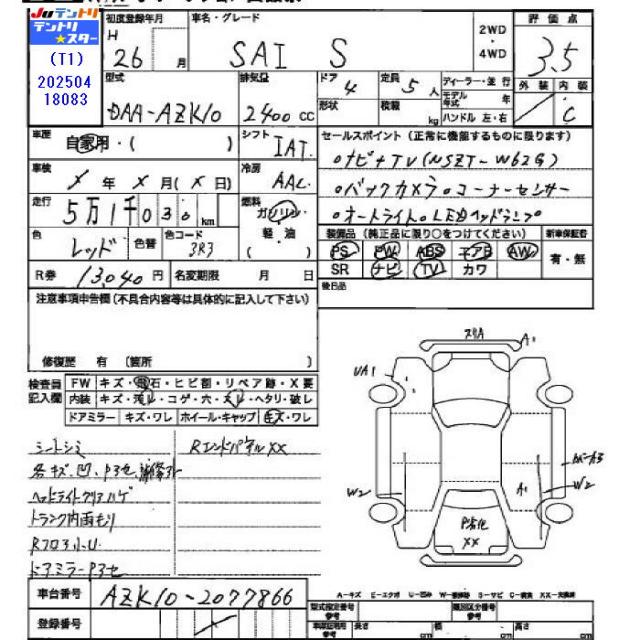 Juテントリ
テントリ★スター
(T1)
202504
18083
初度登録年月
H 26 月
車名・グレード
SAI S
2WD
4WD
評価点
3.5
外装 内装
C
型式
DAA-AZK10
排気量
2400 CC
ドア 4
形状
定員 5 人
積載 kg
ディーラー・並行
モデル年式 年
ハンドル 左・右
車歴
自家用・( )
シフト
IAT
セールスポイント (正常に機能するものに限ります)
○ナビ+TV(NSZT-W62G)
○バックカメラ○コーナーセンサー
○オートライト○LEDヘッドランプ○
車検
X 年 X 月 (X 日)
冷房
AAC
走行
5万1千030 km
燃料
ガソリン
軽・油
( )
色
レッド
色替
色コード
3R3
装備品 (純正品に限り○をつけてください)
新車保証書
有・無
PS PW ABS エアB AW
SR ナビ TV カワ
R券 13,040 円
名変期限 月 日
後日品
注意事項申告欄(不具合内容等は具体的に記入して下さい)
修復歴 有 (箇所 )
検査員記入欄
FW キズ・飛石・ヒビ割・リペア跡・X要
内装 キズ・汚レ・コゲ・穴・スレ・ヘタリ・破レ
ドアミラー キズ・ワレ ホイール・キャップ キズ・ワレ
シートシミ
RエンドパネルXX
各キズ、凹、P3セ、補修アト
ヘッドライトクリアハゲ
トランク内雨もり
Rフロア小U
ドアミラーP3セ
スリA
A1
UA1
W2
A1
W2
P劣化
XX
車台番号
AZK10-2077866
登録番号
A-キズ E-エクボ U-凹み W-補修跡 S-サビ C-腐食 XX-交換跡
型式指定番号
参考
類別区分番号
参考
長さ cm
幅 cm
高さ cm